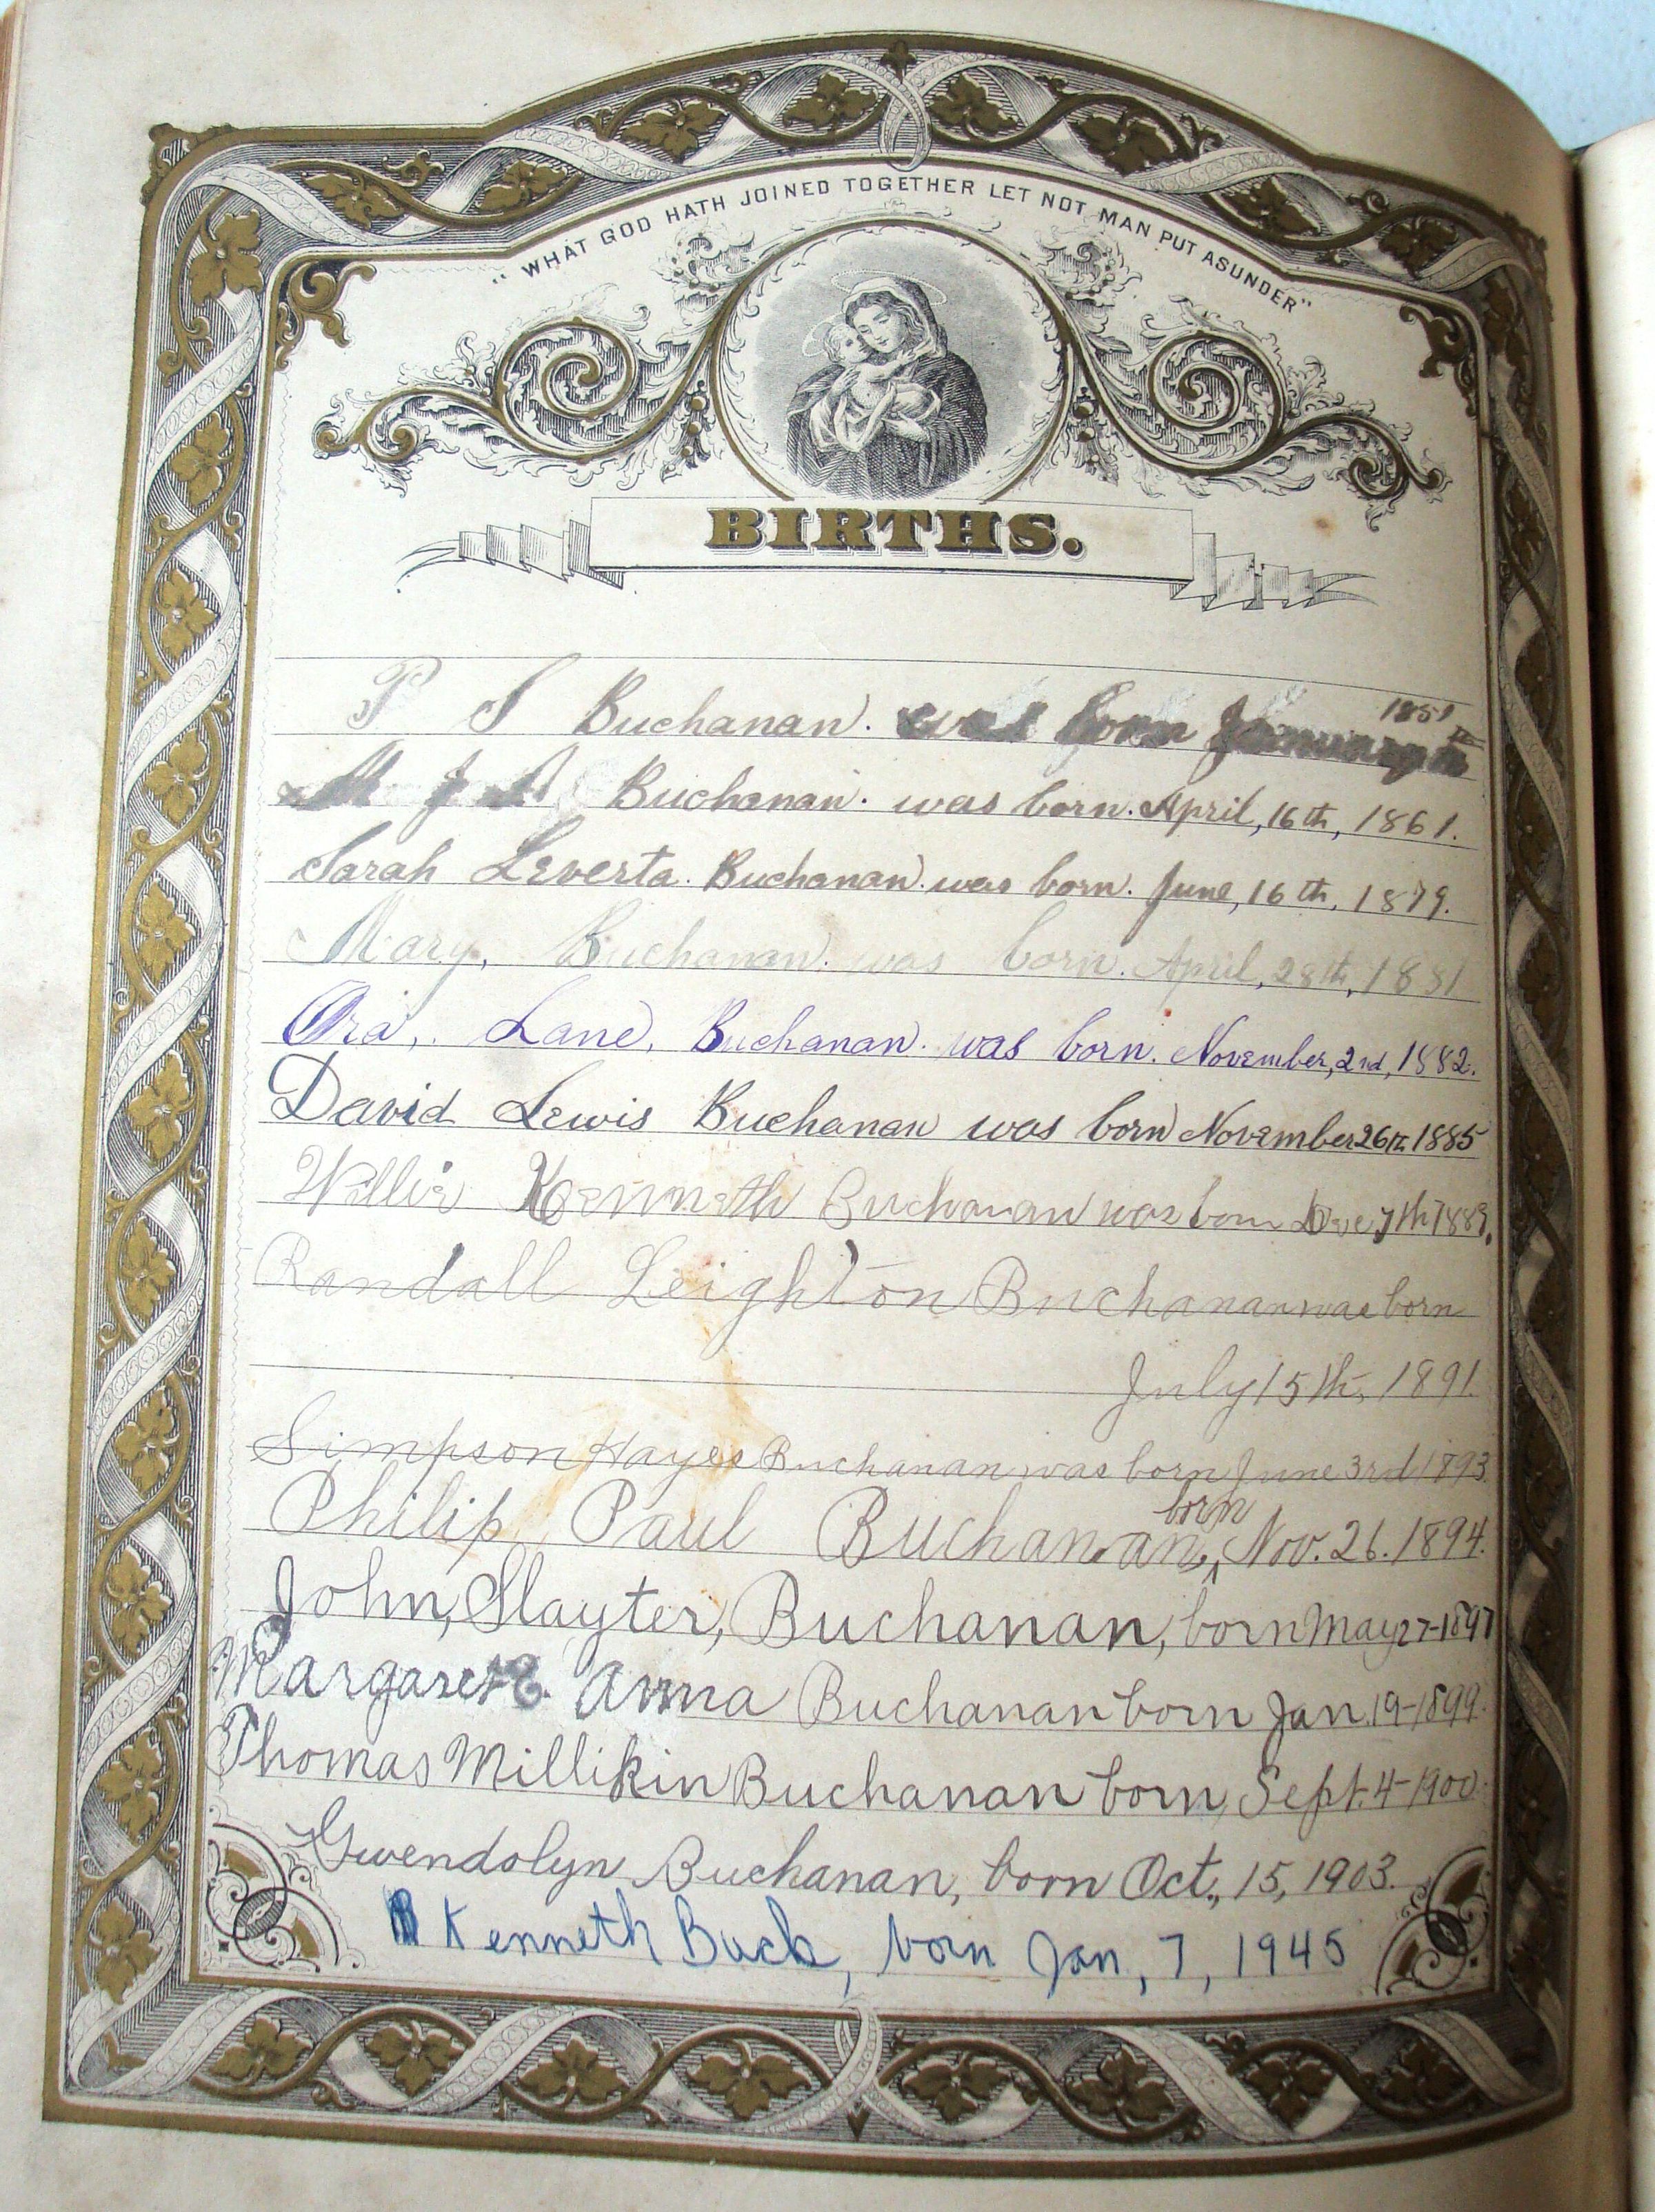 "WHAT GOD HATH JOINED TOGETHER LET NOT MAN PUT ASUNDER"
BIRTHS.
1851
P S Buchanan. was born January
M J Buchanan. was born. April, 16th, 1861.
Sarah Leverta. Buchanan. was born. June, 16th, 1879.
Mary, Buchanan. was born. April, 28th, 1881
Ora, Lane, Buchanan. was born. November, 2nd, 1882.
David Lewis Buchanan was born November 26th 1885
Willie Kenneth Buchanan was born Dec 7th 1889.
Randall Leighton Buchanan was born
July 15th, 1891.
Simpson Hayes Buchanan was born June 3rd 1893.
Philip Paul Buchanan, born Nov. 26. 1894.
John, Slayter, Buchanan, born May 27-1897
Margaret E. Anna Buchanan born Jan. 19-1899.
Thomas Millikin Buchanan born, Sept. 4-1900.
Gwendolyn Buchanan, born Oct., 15, 1903.
Kenneth Buck, born Jan, 7, 1945